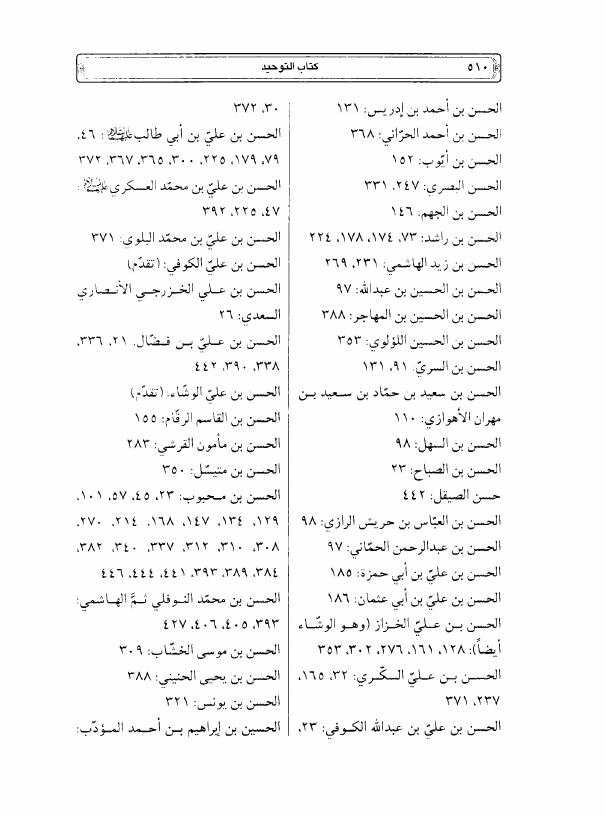 ٥١٠
كتاب التوحيد
الحسن بن أحمد بن إدريس: ١٣١
الحسن بن أحمد الحرّاني: ٣٦٨
الحسن بن أيّوب: ١٥٢
الحسن البصري: ٢٤٧، ٣٣١
الحسن بن الجهم: ١٤٦
الحسن بن راشد: ٧٣، ١٧٤، ١٧٨، ٢٢٤
الحسن بن زيد الهاشمي: ٢٣١، ٢٦٩
الحسن بن الحسين بن عبدالله: ٩٧
الحسن بن الحسين بن المهاجر: ٣٨٨
الحسن بن الحسين اللؤلوي: ٣٥٣
الحسن بن السريّ: ٩١، ١٣١
الحسن بن سعيد بن حمّاد بن سعيد بن
مهران الأهوازي: ١١٠
الحسن بن السهل: ٩٨
الحسن بن الصباح: ٢٣
حسن الصيقل: ٤٤٢
الحسن بن العبّاس بن حريش الرازي: ٩٨
الحسن بن عبدالرحمن الحمّاني: ٩٧
الحسن بن عليّ بن أبي حمزة: ١٨٥
الحسن بن عليّ بن أبي عثمان: ١٨٦
الحسن بن عليّ الخزاز (وهو الوشّاء
أيضاً): ١٢٨، ١٦١، ٢٧٦، ٣٠٢، ٣٥٣
الحسن بن عليّ السكّري: ٣٢، ١٦٥،
٢٣٧، ٣٧١
الحسن بن عليّ بن عبدالله الكوفي: ٢٣،
٣٠، ٣٧٢
الحسن بن عليّ بن أبي طالب: ٤٦،
٧٩، ١٧٩، ٢٢٥، ٣٠٠، ٣٦٥، ٣٦٧، ٣٧٢
الحسن بن عليّ بن محمّد العسكري:
٤٧، ٢٢٥، ٣٩٢
الحسن بن عليّ بن محمّد البلوي: ٣٧١
الحسن بن عليّ الكوفي: (تقدّم)
الحسن بن علي الخزرجي الأنصاري
السعدي: ٢٦
الحسن بن عليّ بن فضّال: ٢١، ٣٣٦،
٣٣٨، ٣٩٠، ٤٤٢
الحسن بن عليّ الوشّاء: (تقدّم)
الحسن بن القاسم الرقّام: ١٥٥
الحسن بن مأمون القرشي: ٢٨٣
الحسن بن متيسّل: ٣٥٠
الحسن بن محبوب: ٢٣، ٤٥، ٥٧، ١٠١،
١٢٩، ١٣٤، ١٤٧، ١٦٨، ٢١٤، ٢٧٠،
٣٠٨، ٣١٠، ٣١٢، ٣٣٧، ٣٤٠، ٣٨٢،
٣٨٤، ٣٨٩، ٣٩٣، ٤٤١، ٤٤٤، ٤٤٦
الحسن بن محمّد النوفلي ثمَّ الهاشمي:
٣٩٣، ٤٠٥، ٤٠٦، ٤٢٧
الحسن بن موسى الخشّاب: ٣٠٩
الحسن بن يحيى الحنيني: ٣٨٨
الحسن بن يونس: ٣٢١
الحسين بن إبراهيم بن أحمد المؤدّب: